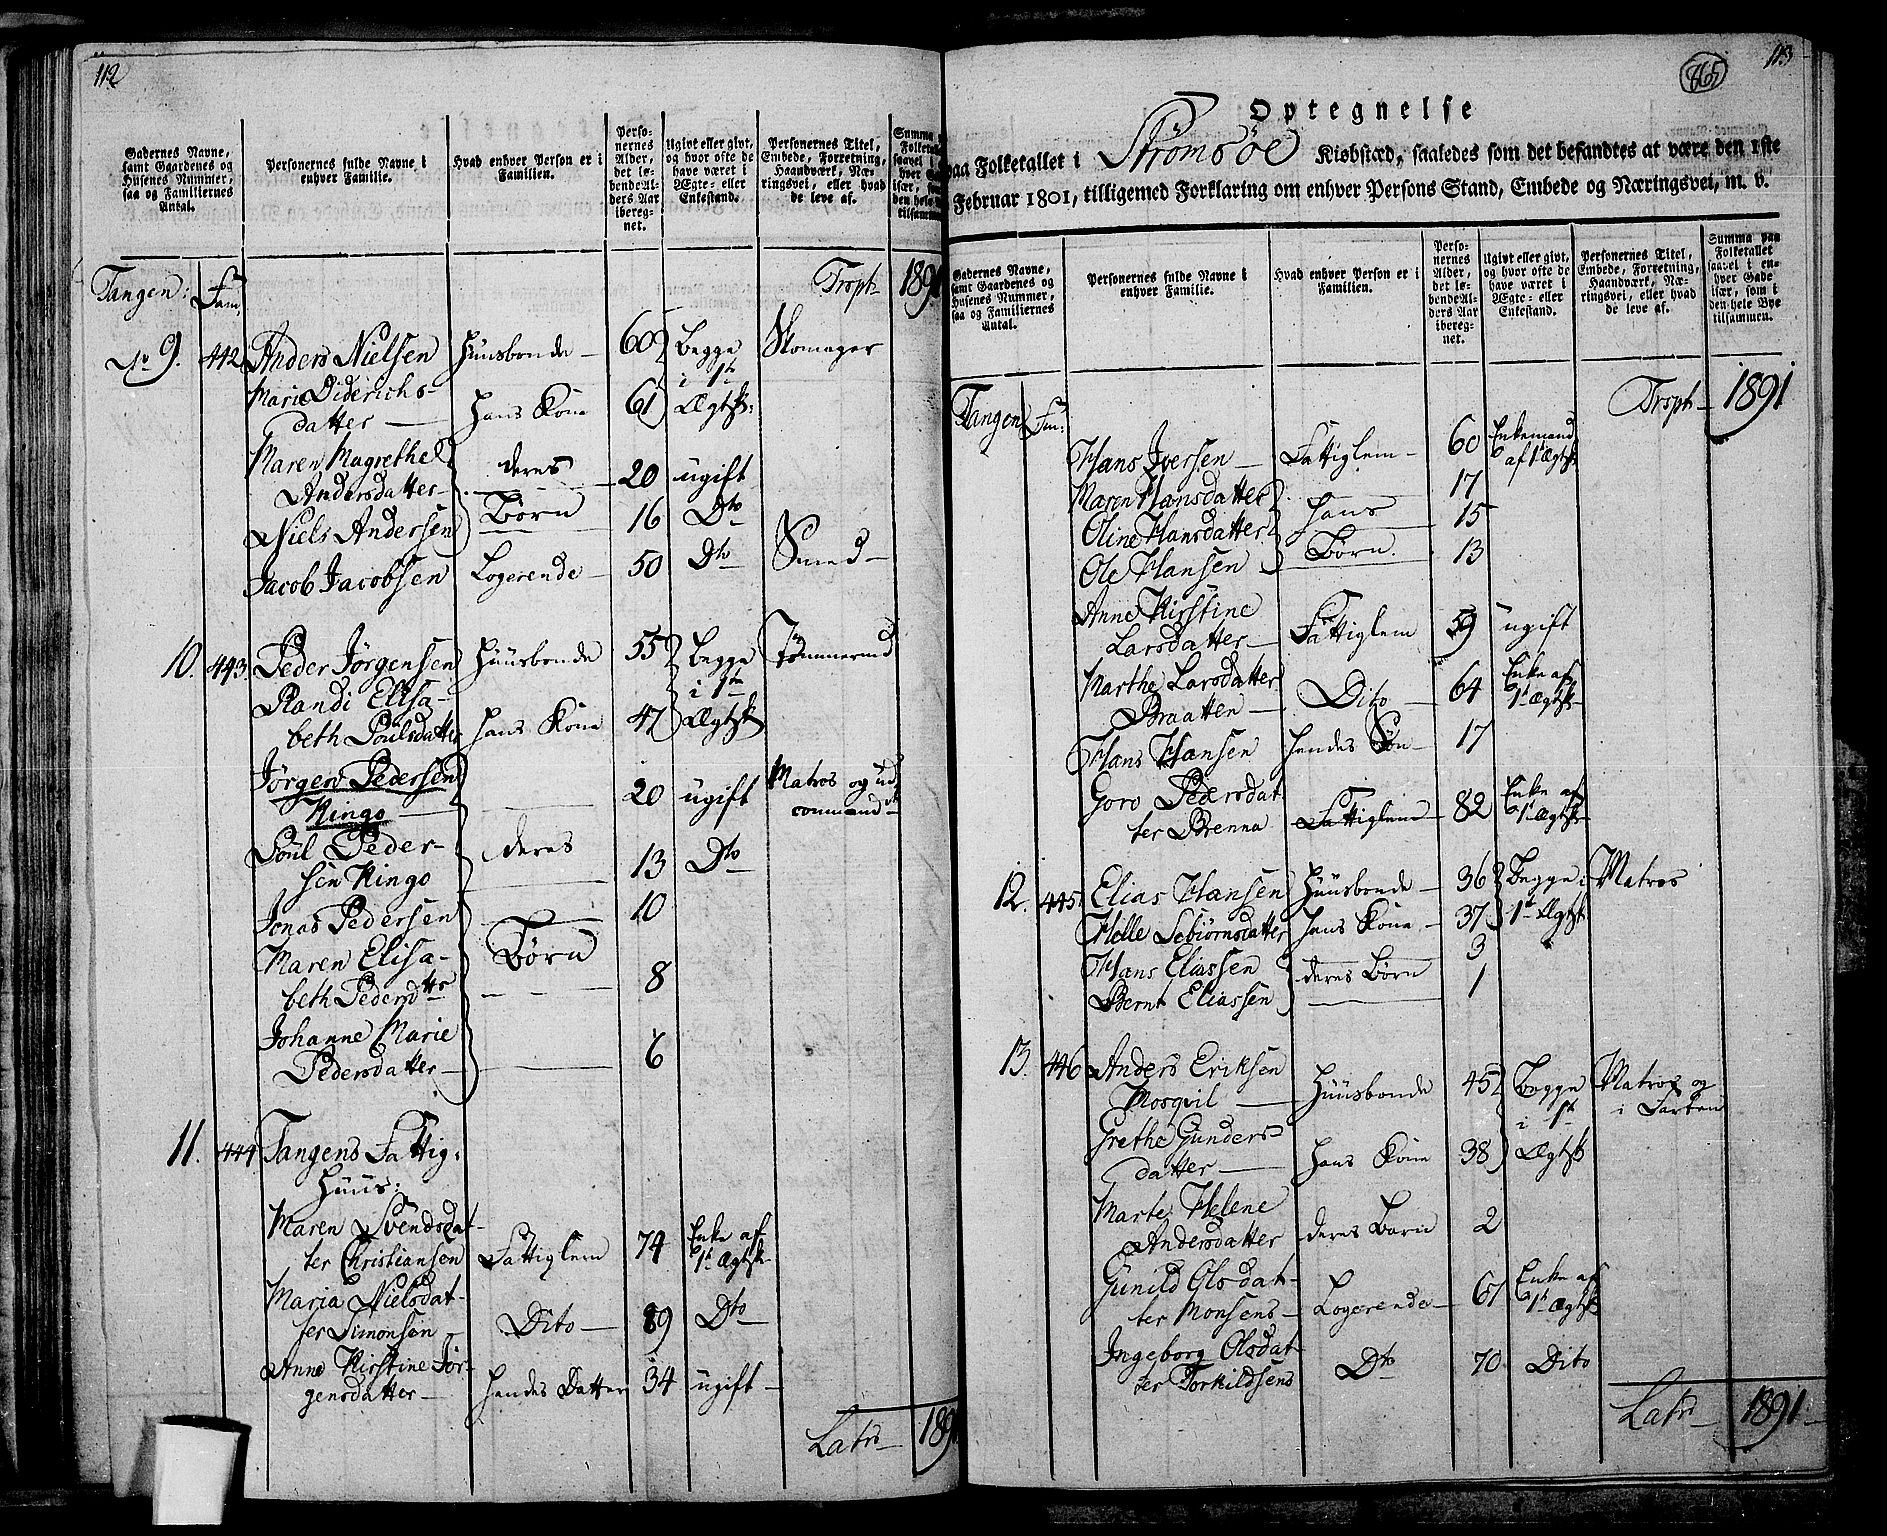 112
Gadernes Navne, samt Gaardenes og Husenes Nummer, saa og Familiernes Antal.
Personernes fulde Navne i enhver Familie.
Hvad enhver Person er i Familien.
Personernes Alder, det løbende Alders Aar iberegnet.
Ugivt eller givt, og hvor ofte de have været i Ægte- eller Enkestand.
Personernes Titel, Embede, Forretning, Haandværk, Næringsvei, eller hvad de leve af.
Tangen: Fam: Trspt 1891
No 9. 442 Anders Nielsen Huusbonde 60 Begge Skomager
Marie Diderichs- i 1te
datter Hans Kone 61 Ægtsk:
Maren Magrethe deres
Andersdatter 20 ugift
Niels Andersen Børn 16 Dto
Jacob Jacobsen Logerende 50 Dto Smed
10. 443. Peder Jørgensen Huusbonde 55 Begge Tømmermd
Randi Elisa- i 1te
beth Poulsdatter Hans Kone 47 Ægtsk
Jørgen Pedersen 20 ugift Matros og ud
Ringo command
Poul Peder- deres
sen Ringo 13 Dto
Jonas Pedersen 10
Maren Elisa- Børn
beth Pedersdttr 8
Johanne Marie
Pedersdatter 6
11. 444 Tangens Fattig-
Huus:
Maren Svendsdat- Enke af
ter Christiansen Fattiglem 74 1t Ægtsk
Maria Nielsdat-
ter Simonsen Dito 89 Dto
Anne Kirstine Jør- Hendes Datter 34 ugift
gensdatter
Latrs 1891
113
Optegnelse
paa Folketallet i Strømsøe Kiøbstæd, saaledes som det befandtes at være den 1ste
Februar 1801, tilligemed Forklaring om enhver Persons Stand, Embede og Næringsvei, m. v.
Gadernes Navne, samt Gaardenes og Husenes Nummer, saa og Familiernes Antal.
Personernes fulde Navne i enhver Familie.
Hvad enhver Person er i Familien.
Personernes Alder, det løbende Alders Aar iberegnet.
Ugivt eller givt, og hvor ofte de have været i Ægte- eller Enkestand.
Personernes Titel, Embede, Forretning, Haandværk, Næringsvei, eller hvad de leve af.
Summa paa Folketallet saavel i enhver Gade især, som i den hele Bye tilsammen.
Trspt 1891
Tangen Fm:
Hans Iversen Fattiglem 60 Enkemand af 1t Ægtsk
Maren Hansdatter 17
Oline Hansdatter Hans 15
Ole Hansen Børn. 13
Anne Kirstine
Larsdatter Fattiglem 59 ugift
Marthe Larsdatter Enke af
Braatten Dito 64 1t Ægtsk
Hans Hansen Hendes Søn 17
Goro Pedersdat- Enke af
ter Brenna Fattiglem 82 1t Ægtsk
12. 445. Elias Hansen Huusbonde 36 Begge i Matros
Helle Sebiørnsdatter Hans Kone 37 1t Ægtsk
Hans Eliassen deres Børn 3
Bernt Eliassen 1
13. 446 Anders Eriksen Begge Matros og
Mosqvil Huusbonde 45 i 1t i Farten
Grethe Gunders-
datter Hans Kone 38 Ægtsk
Marte Helene
Andersdatter deres Barn 2
Gunild Olsdat- Enke af
ter Monsens Logerende 67 1t Ægtsk
Ingeborg Olsdat-
ter Torkildsens Dto 70 Dito
Latrs 1891